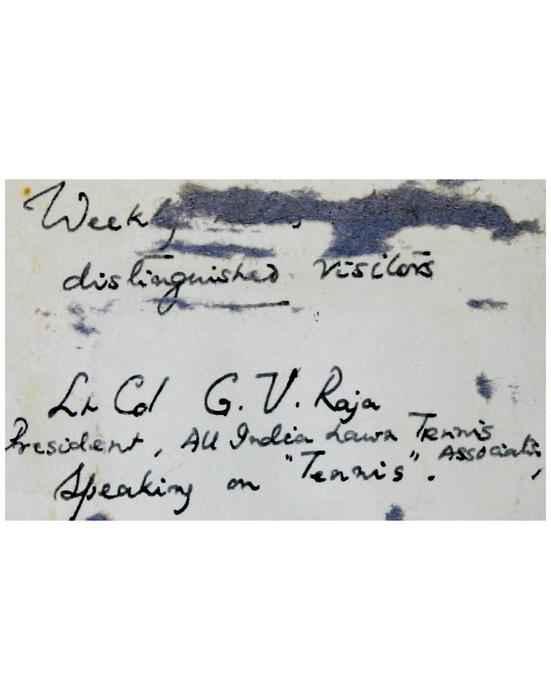 Weekly
distinguished visitors
Lt Col G. V. Raja
President, All India Lawn Tennis
Association,
Speaking on "Tennis".